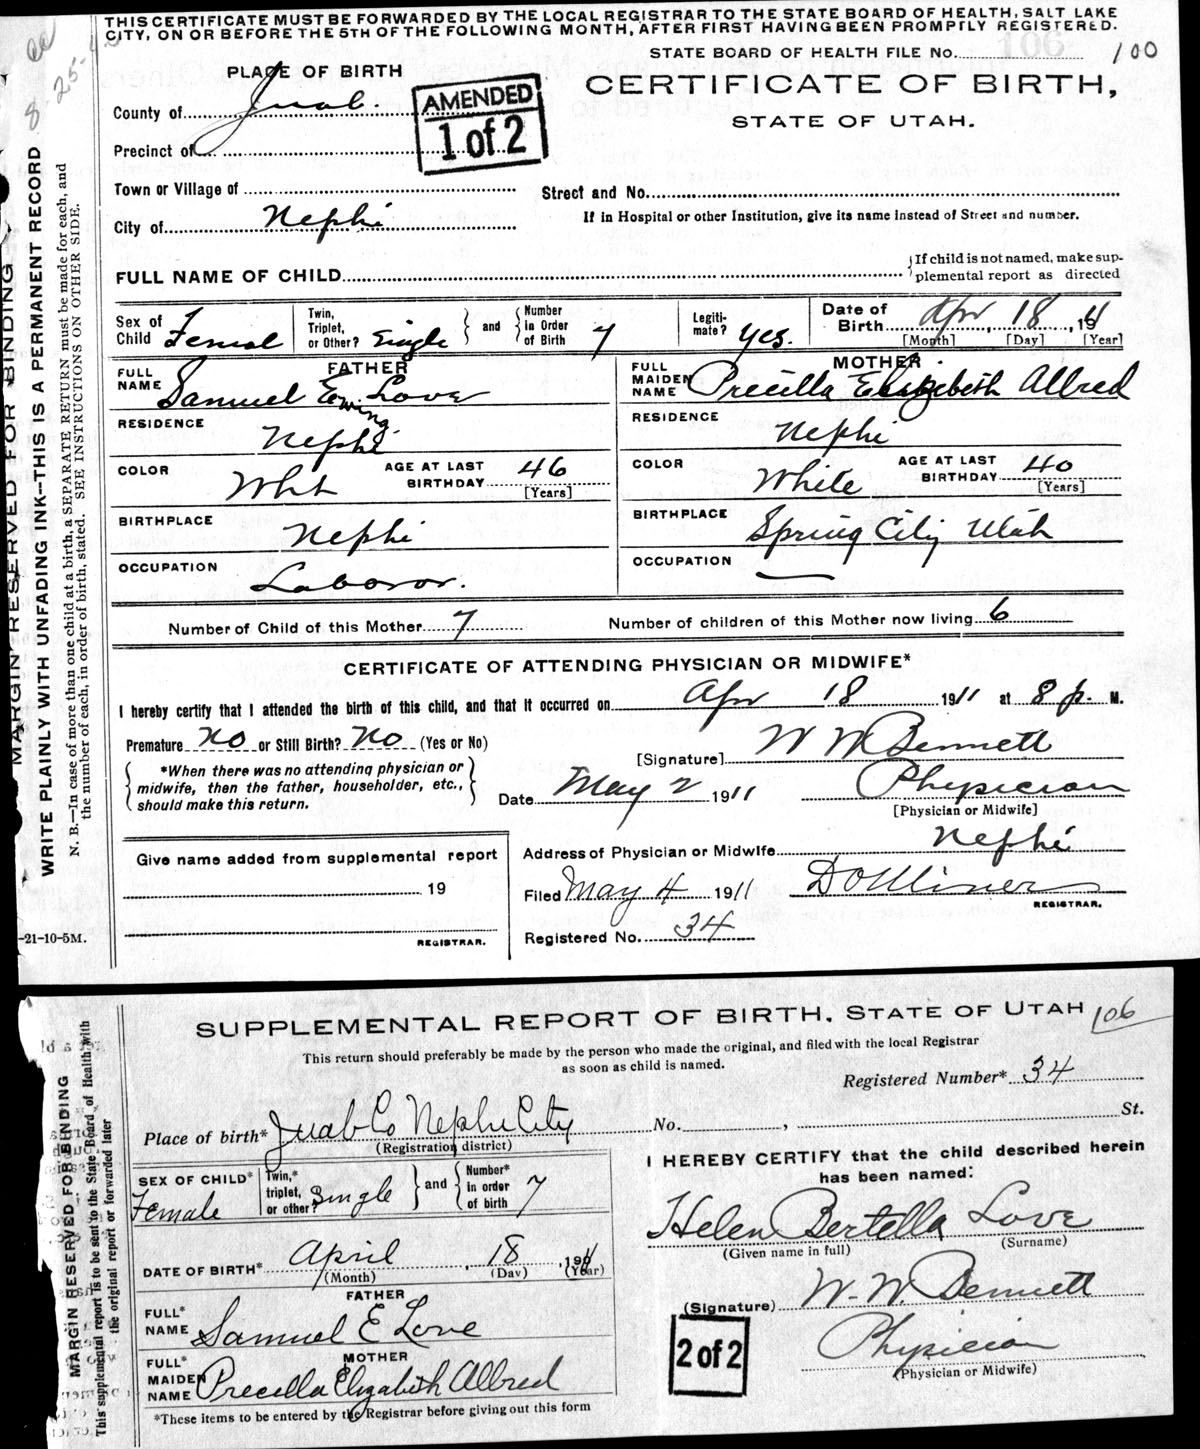 THIS CERTIFICATE MUST BE FORWARDED BY THE LOCAL REGISTRAR TO THE STATE BOARD OF HEALTH, SALT LAKE
CITY, ON OR BEFORE THE 5TH OF THE FOLLOWING MONTH, AFTER FIRST HAVING BEEN PROMPTLY REGISTERED.
STATE BOARD OF HEALTH FILE No. 106 100
PLACE OF BIRTH
CERTIFICATE OF BIRTH,
STATE OF UTAH.
AMENDED
1 of 2
County of Juab.
Precinct of
Town or Village of
Street and No.
City of Nephi
If in Hospital or other Institution, give its name instead of Street and number.
FULL NAME OF CHILD
If child is not named, make sup-
plemental report as directed
Sex of Child Female
Twin, Triplet, or Other? Single
and
Number in Order of Birth 7
Legiti-mate? Yes.
Date of Birth Apr, 18, 1911
[Month] [Day] [Year]
FATHER
FULL NAME Samuel Ewing Love
MOTHER
FULL MAIDEN NAME Precilla Elizibeth Allred
RESIDENCE Nephi
RESIDENCE Nephi
COLOR Wht
AGE AT LAST BIRTHDAY 46 [Years]
COLOR White
AGE AT LAST BIRTHDAY 40 [Years]
BIRTHPLACE Nephi
BIRTHPLACE Spring City Utah
OCCUPATION Laboror.
OCCUPATION —
Number of Child of this Mother 7
Number of children of this Mother now living 6
CERTIFICATE OF ATTENDING PHYSICIAN OR MIDWIFE*
I hereby certify that I attended the birth of this child, and that it occurred on Apr 18 1911 at 8 p. M.
Premature No or Still Birth? No (Yes or No)
[Signature] W W Bennett
*When there was no attending physician or
midwife, then the father, householder, etc.,
should make this return.
Date May 2 1911
Physician
[Physician or Midwife]
Give name added from supplemental report
19
REGISTRAR.
Address of Physician or Midwife Nephi
Filed May 4 1911
D O Miner
REGISTRAR.
Registered No. 34
-21-10-5M.
MARGIN RESERVED FOR BINDING
WRITE PLAINLY WITH UNFADING INK--THIS IS A PERMANENT RECORD
N. B.—In case of more than one child at a birth, a SEPARATE RETURN must be made for each, and
the number of each, in order of birth, stated. SEE INSTRUCTIONS ON OTHER SIDE.
SUPPLEMENTAL REPORT OF BIRTH, STATE OF UTAH 106
This return should preferably be made by the person who made the original, and filed with the local Registrar
as soon as child is named.
Registered Number* 34
Place of birth* Juab Co Nephi City
(Registration district)
No. , St.
SEX OF CHILD* Female
Twin,* triplet, or other? Single
and
Number* in order of birth 7
I HEREBY CERTIFY that the child described herein
has been named:
Helen Bertella Love
(Given name in full) (Surname)
DATE OF BIRTH* April, 18, 1911
(Month) (Day) (Year)
FATHER
FULL* NAME Samuel E Love
(Signature) W. W. Bennett
2 of 2
Physician
(Physician or Midwife)
MOTHER
FULL* MAIDEN NAME Precella Elizabeth Allred
*These items to be entered by the Registrar before giving out this form
MARGIN RESERVED FOR BINDING
This supplemental report is to be sent to the State Board of Health with
the original report or forwarded later